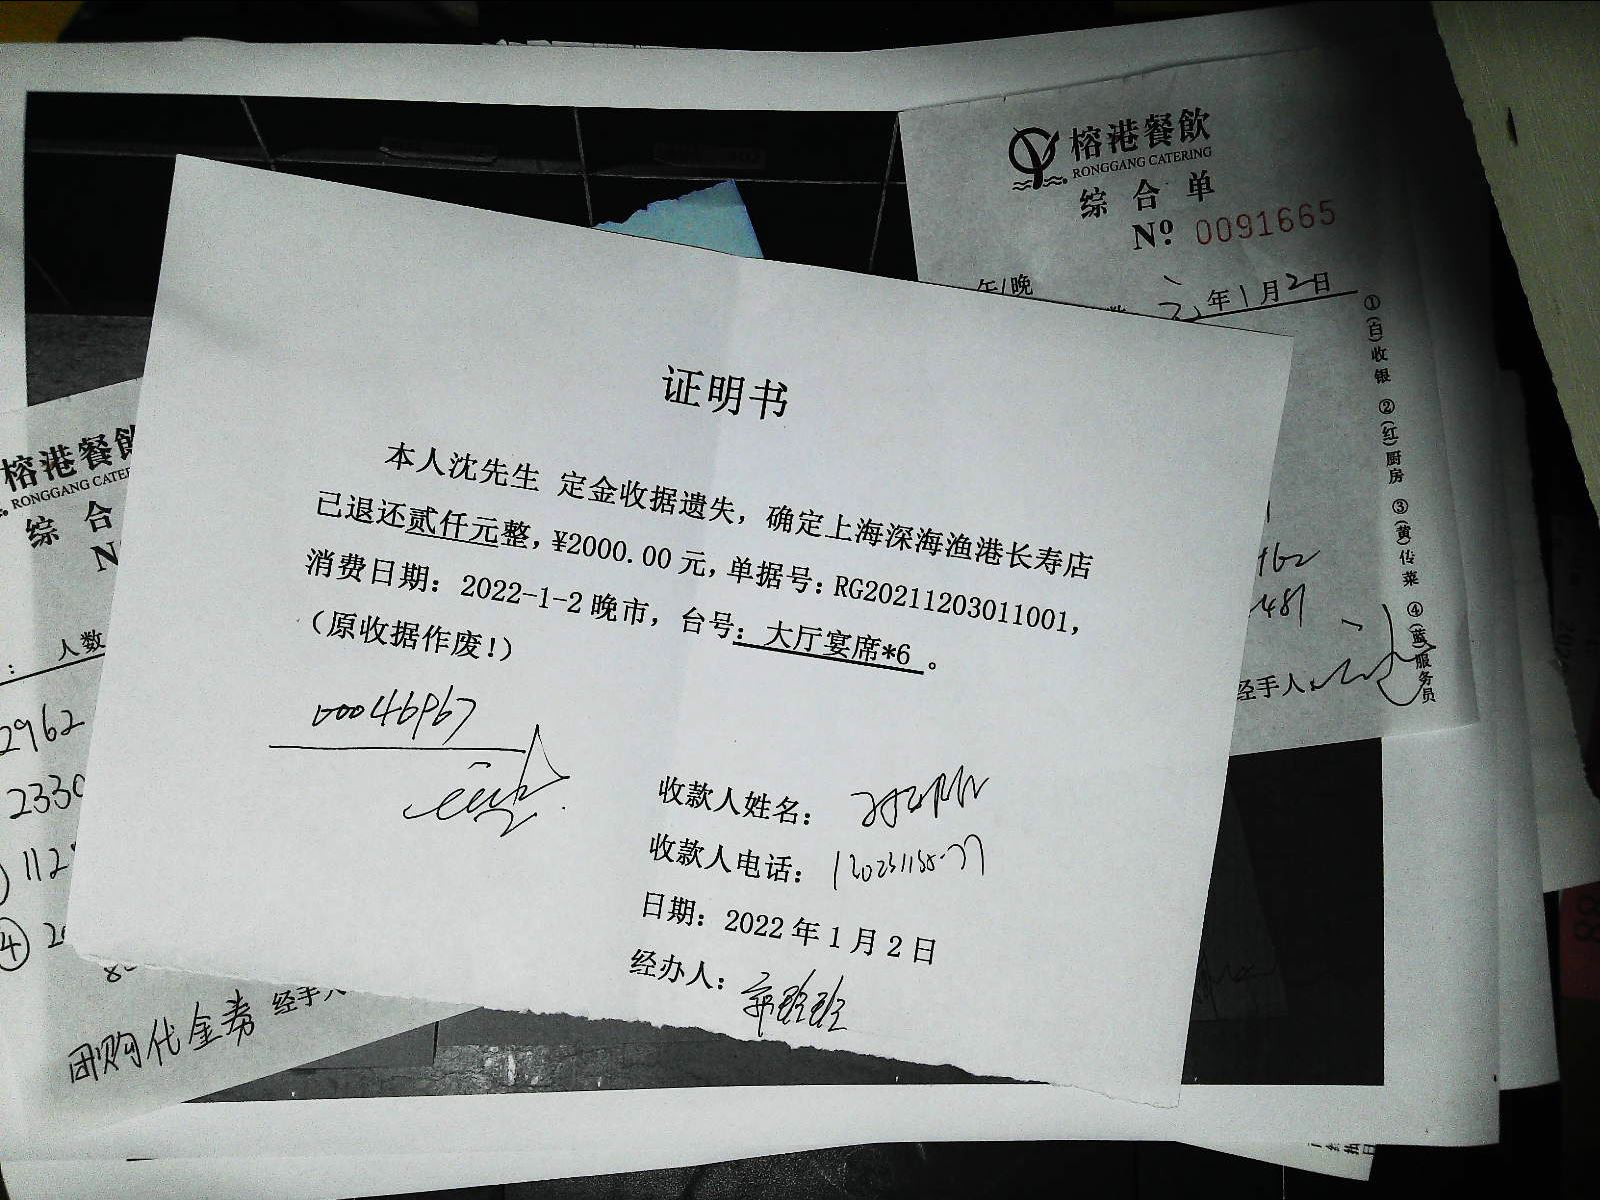 榕港餐飲
RONGGANG CATERING
综合单
Nº 0091665
午/晚
年1月2日
①(白)收银 ②(红)厨房 ③(黄)传菜 ④(蓝)服务员
481
经手人
证明书
本人沈先生 定金收据遗失，确定上海深海渔港长寿店
已退还贰仟元整，¥2000.00元，单据号：RG20211203011001，
消费日期：2022-1-2晚市，台号：大厅宴席*6。
（原收据作废！）
0046967
收款人姓名：
收款人电话：
日期：2022年1月2日
经办人：
榕港餐飲
RONGGANG CATER
综合
N
：人数
2962
2330
112
④ 2
团购代金券 经手人